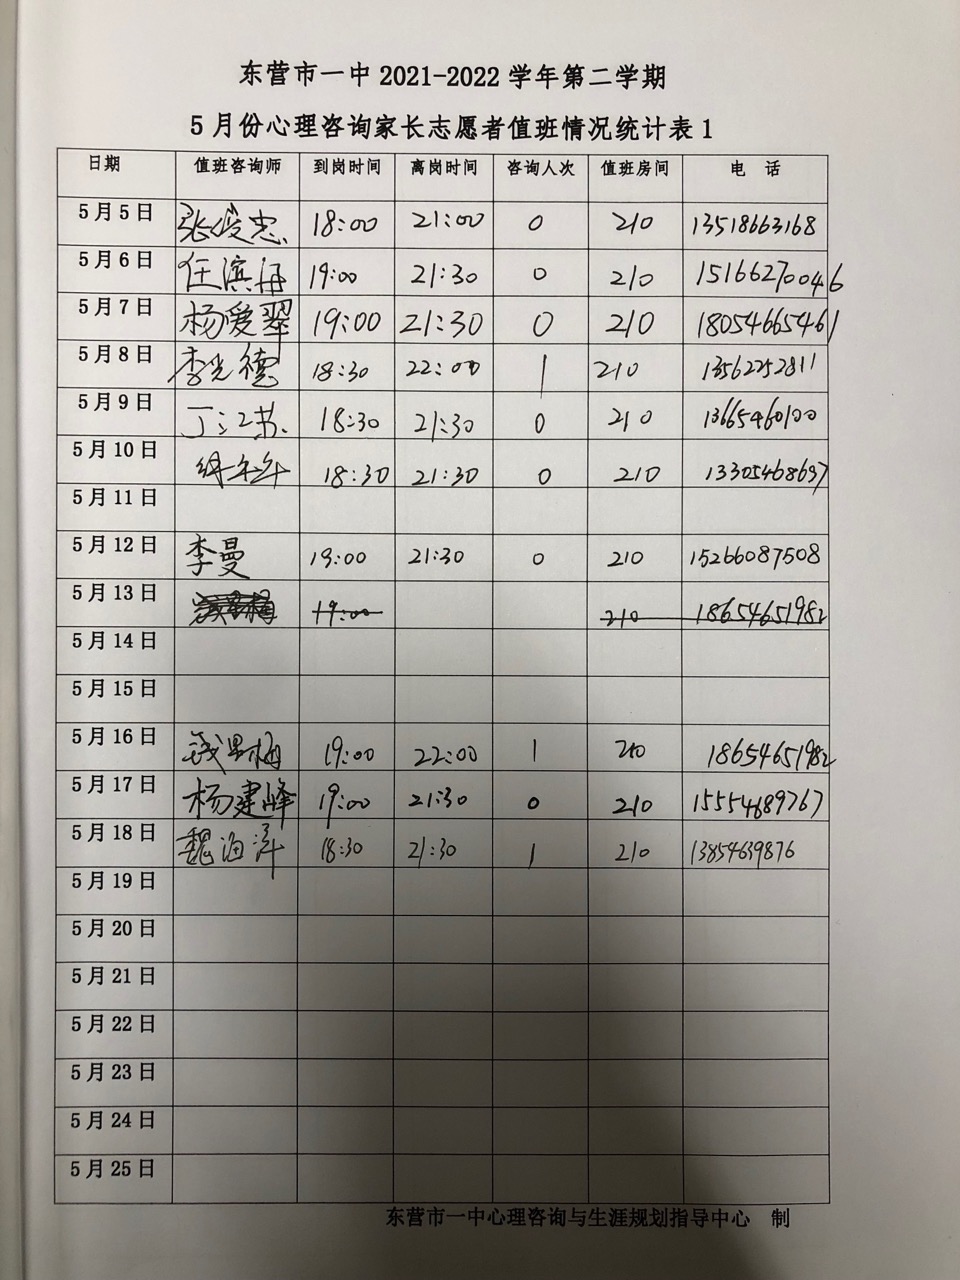 东营市一中 2021-2022 学年第二学期
5 月份心理咨询家长志愿者值班情况统计表 1
日期 值班咨询师 到岗时间 离岗时间 咨询人次 值班房间 电 话
5 月 5 日 张俊忠 18:00 21:00 0 210 13518663168
5 月 6 日 任滨海 19:00 21:30 0 210 15166270046
5 月 7 日 杨爱翠 19:00 21:30 0 210 18054665461
5 月 8 日 李光德 18:30 22:00 1 210 13562252811
5 月 9 日 丁江苏 18:30 21:30 0 210 13665460100
5 月 10 日 18:30 21:30 0 210 13305468697
5 月 11 日
5 月 12 日 李曼 19:00 21:30 0 210 15266087508
5 月 13 日 19:00 210 18654651982
5 月 14 日
5 月 15 日
5 月 16 日 19:00 22:00 1 210 18654651982
5 月 17 日 杨建峰 19:00 21:30 0 210 15554689767
5 月 18 日 魏海洋 18:30 21:30 1 210 13854639876
5 月 19 日
5 月 20 日
5 月 21 日
5 月 22 日
5 月 23 日
5 月 24 日
5 月 25 日
东营市一中心理咨询与生涯规划指导中心 制